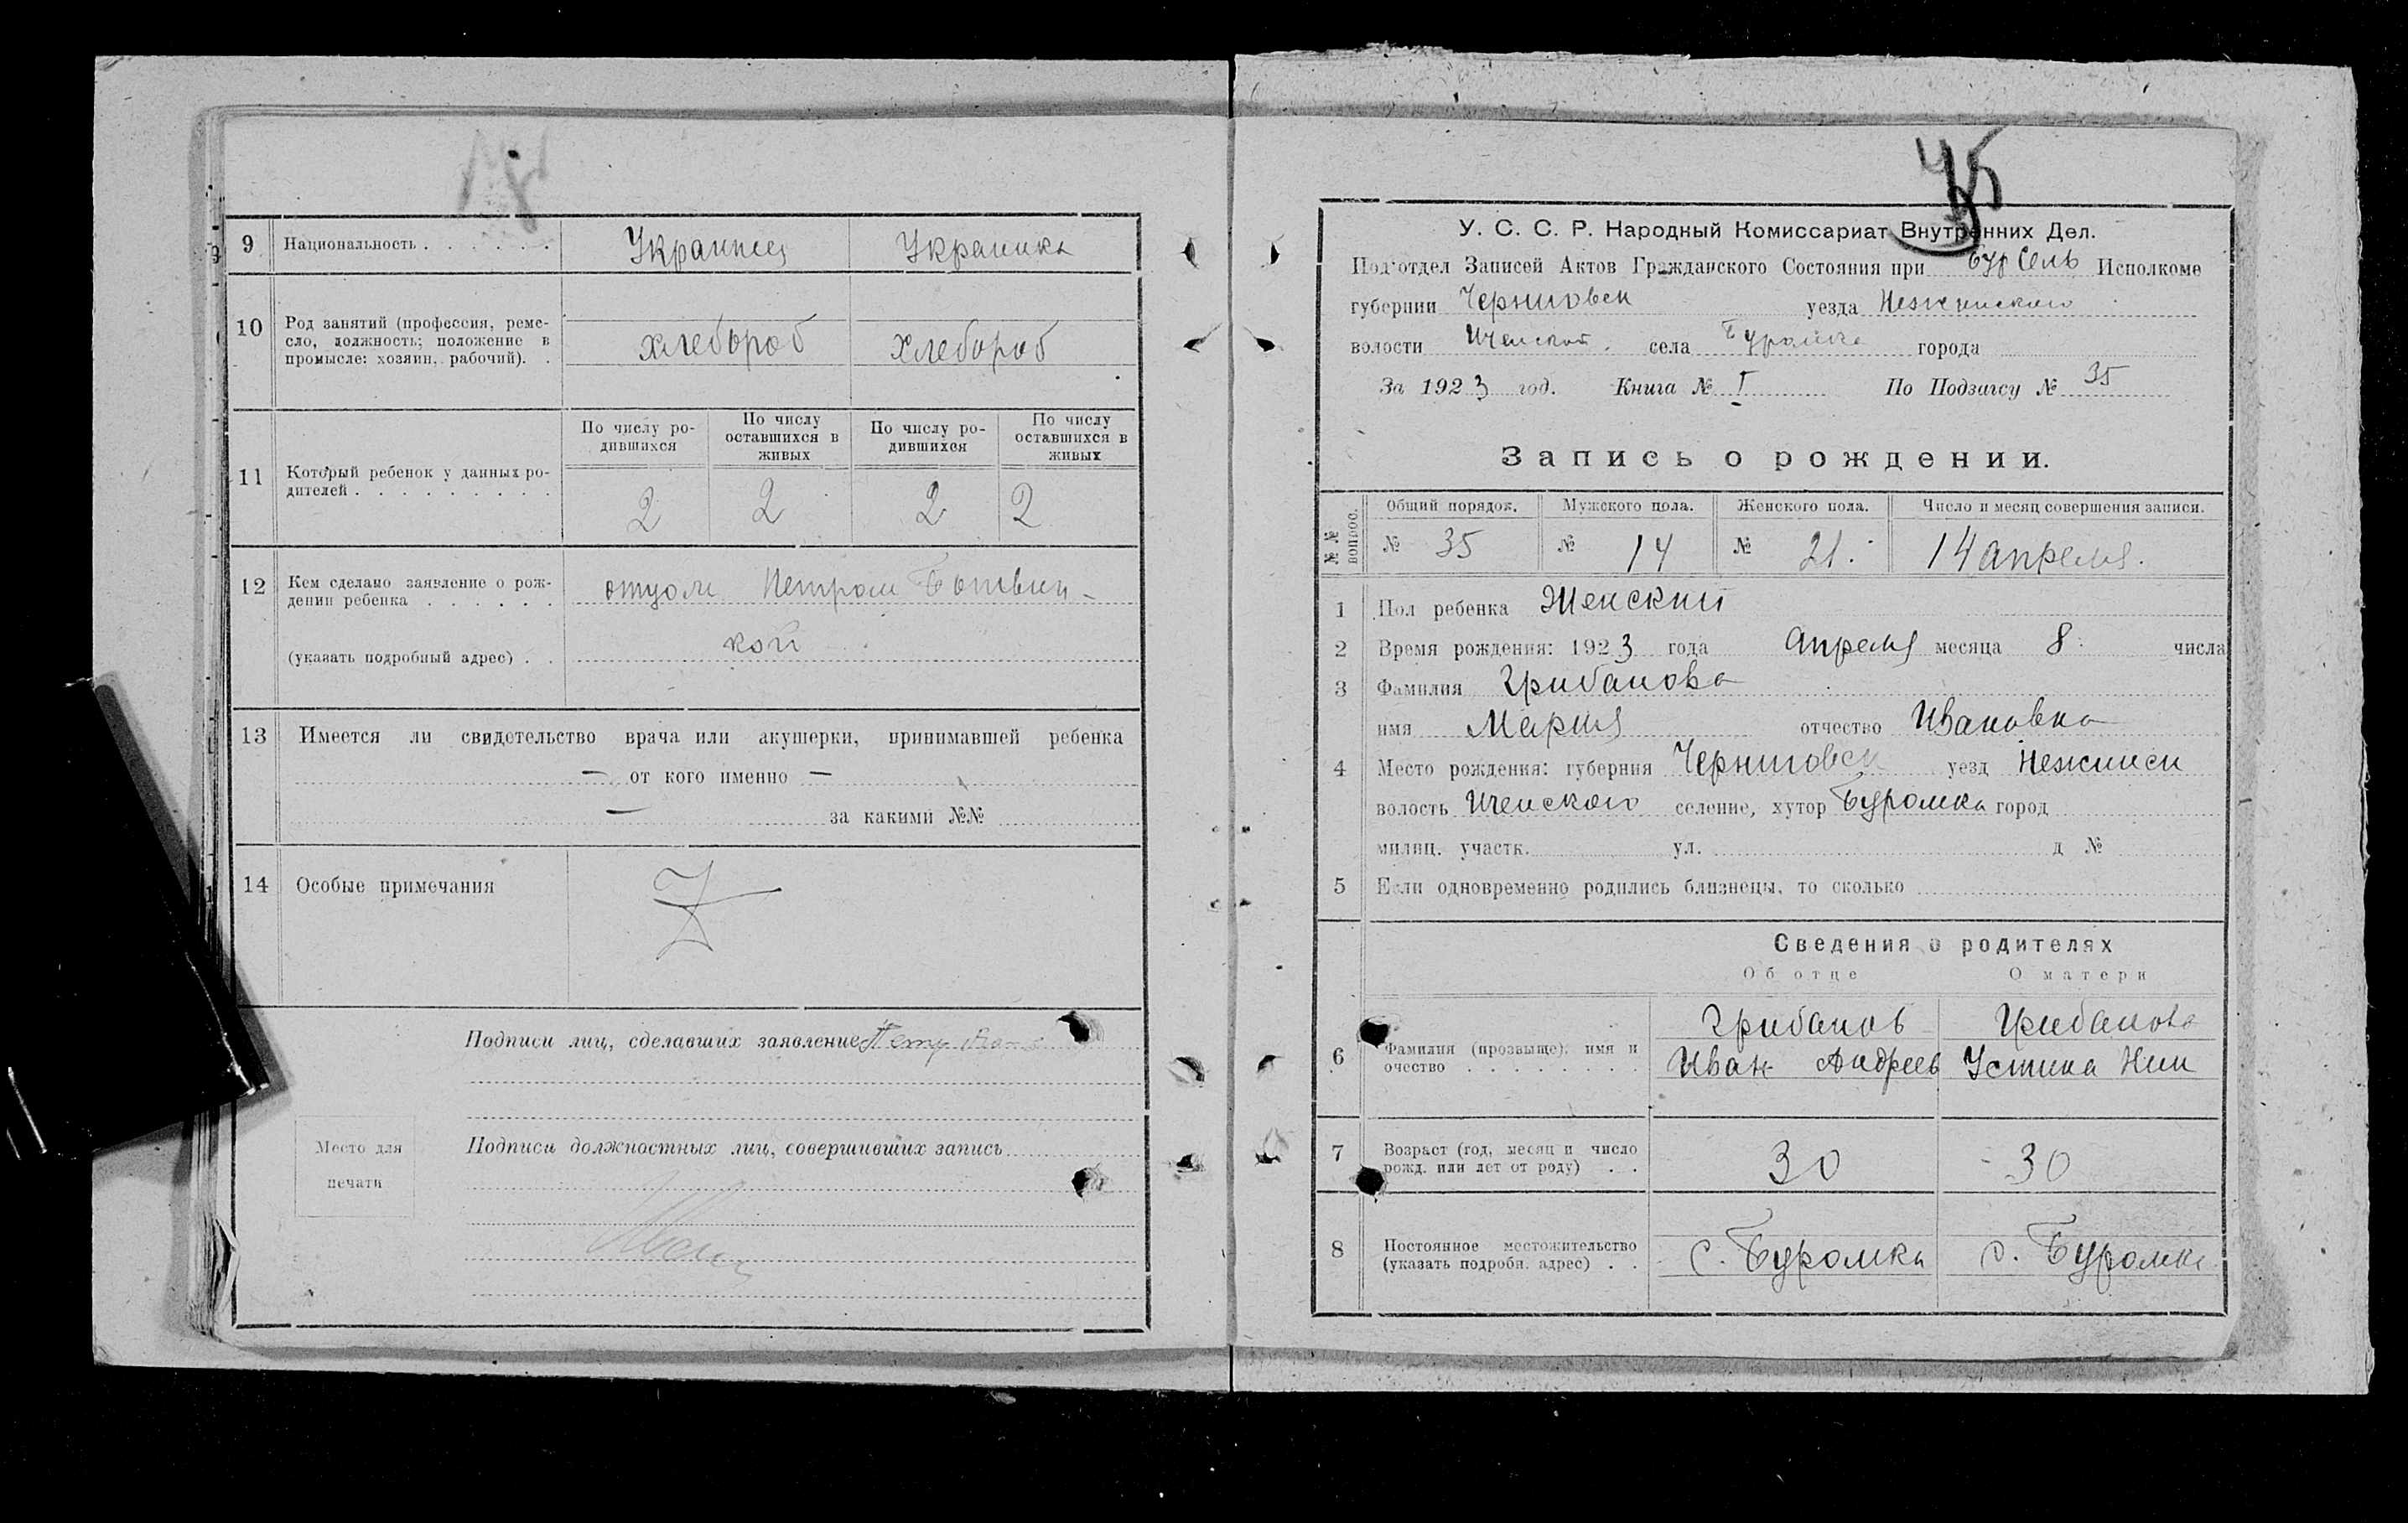 9 Национальность . . . . . . Украинец Украинка
10 Род занятий (профессия, реме-
сло, должность; положение в
промысле: хозяин, рабочий). . хлебороб хлебороб
По числу ро-
дившихся По числу
оставшихся в
живых По числу ро-
дившихся По числу
оставшихся в
живых
11 Который ребенок у данных ро-
дителей . . . . . . . . . 2 2 2 2
12 Кем сделано заявление о рож-
дении ребенка . . . . . . отцом Петром Ботвин-
кой
(указать подробный адрес) . .
13 Имеется ли свидетельство врача или акушерки, принимавшей ребенка
— от кого именно —
— за какими №№
14 Особые примечания
Подписи лиц, сделавших заявление
Место для
печати
Подписи должностных лиц, совершивших запись
У. С. С. Р. Народный Комиссариат Внутренних Дел.
Под'отдел Записей Актов Гражданского Состояния при Бур Сель Исполкоме
губернии Черниговск уезда Нежинского
волости Иченской села Буромка города
За 1923 год. Книга № I По Подзагсу № 35
Запись о рождении.
№ №
вопрос. Общий порядок. Мужского пола. Женского пола. Число и месяц совершения записи.
№ 35 № 14 № 21. 14 апреля.
1 Пол ребенка Женский
2 Время рождения: 1923 года Апреля месяца 8 числа
3 Фамилия Грибанова
имя Мария отчество Ивановна
4 Место рождения: губерния Черниговск уезд Нежинск
волость Иченского селение, хутор Буромка город
милиц. участк. ул. д №
5 Если одновременно родились близнецы, то сколько
Сведения о родителях
Об отце О матери
Грибанов Грибанова
6 Фамилия (прозвище), имя и
очество . . . . . . . . Иван Андреев Устина Ник
7 Возраст (год, месяц и число
рожд. или лет от роду) . . 30 30
8 Постоянное местожительство
(указать подробн. адрес) . . с. Буромка с. Буромка